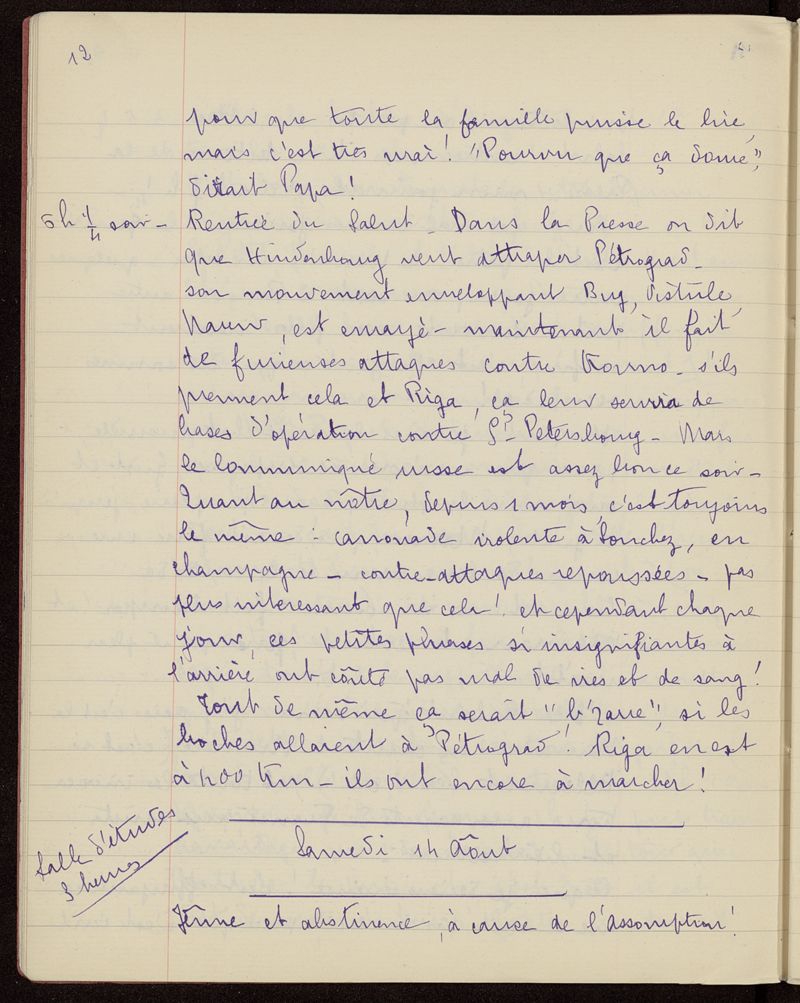 12
pour que toute la famille puisse le lire,
mais c'est très vrai! "Pourvu que ça dame",
disait Papa!
5 h 1/4 soir - Rentrée du Salut - Dans la Presse on dit
que Hindenbourg veut attraper Pétrograd -
son mouvement enveloppant Bug, Vistule,
Narew, est enrayé - maintenant il fait
de furieuses attaques contre Kowno - s'ils
prennent cela et Riga, ça leur servira de
bases d'opération contre St Petersbourg - Mais
le Communiqué russe est assez bon ce soir -
Quant au nôtre, depuis 1 mois, c'est toujours
le même : canonade violente à Souchez, en
champagne - contre-attaques repoussées - pas
plus intéressant que cela! et cependant chaque
jour, ces petites phrases si insignifiantes à
l'arrière ont coûté pas mal de vies et de sang!
Tout de même ça serait "b'zarre", si les
boches allaient à Pétrograd! Riga en est
à 400 Km - ils ont encore à marcher!
Salle d'études
3 heures
Samedi 14 Août
Jeûne et abstinence, à cause de l'assomption!